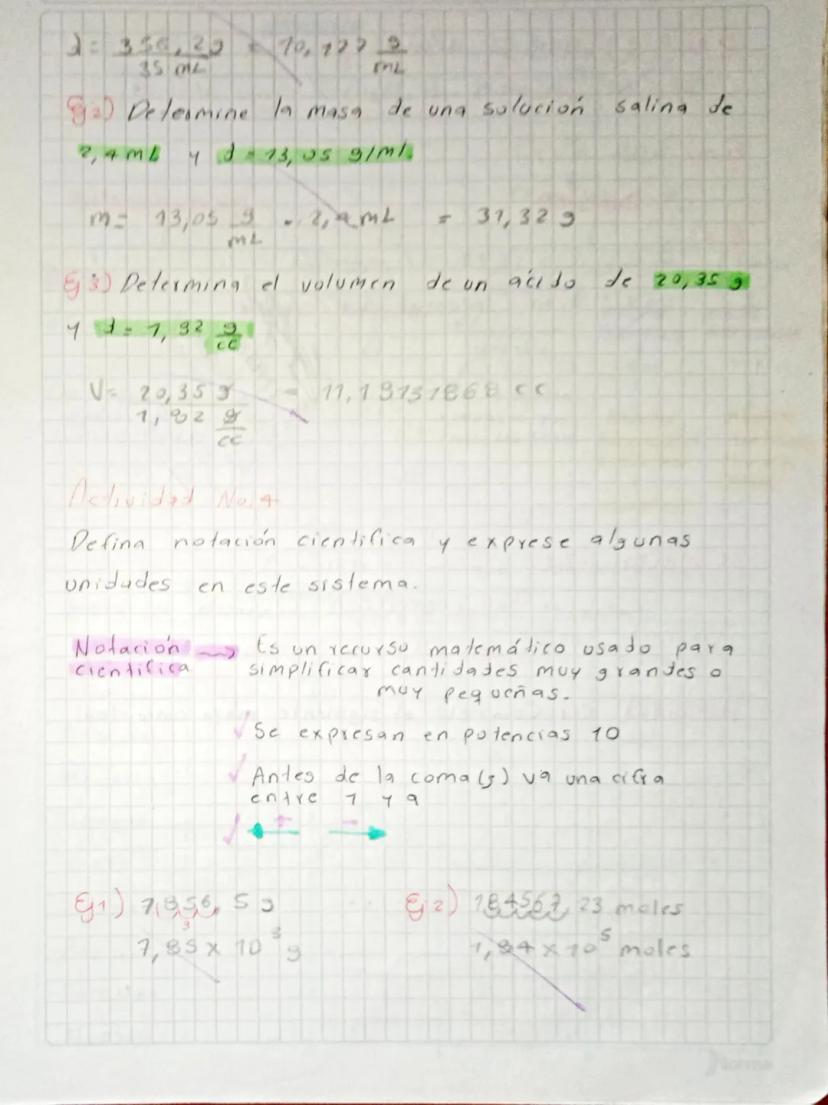 d = 356,2g = 10,177 g
35 mL mL
Ej 2) Determine la masa de una solución salina de
2,4 mL y d = 13,05 g/mL
m = 13,05 g . 2,4 mL = 31,32 g
mL
Ej 3) Determina el volumen de un ácido de 20,35 g
y d = 1,82 g
cc
V = 20,35 g = 11,18131868 cc
1,82 g
cc
Actividad No. 4
Defina notación cientifica y exprese algunas
unidades en este sistema.
Notación → Es un recurso matemático usado para
cientifica simplificar cantidades muy grandes o
muy pequeñas.
✓ Se expresan en potencias 10
✓ Antes de la coma (,) va una cifra
entre 1 y 9
✓ ← + - →
Ej 1) 7856,5 g Ej 2) 184567,23 moles
3
7,85 x 10³ g 1,84 x 10⁵ moles
norma